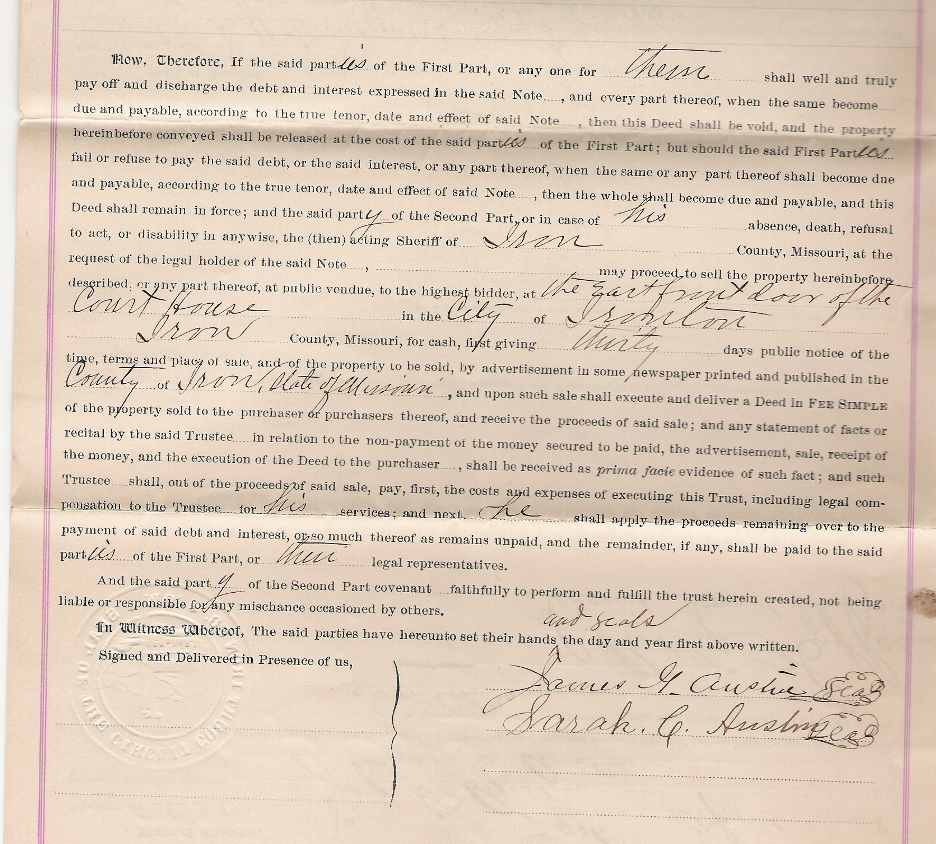 Now, Therefore, If the said parties of the First Part, or any one for them shall well and truly
pay off and discharge the debt and interest expressed in the said Note...., and every part thereof, when the same become
due and payable, according to the true tenor, date and effect of said Note...., then this Deed shall be void, and the property
hereinbefore conveyed shall be released at the cost of the said parties of the First Part; but should the said First Parties
fail or refuse to pay the said debt, or the said interest, or any part thereof, when the same or any part thereof shall become due
and payable, according to the true tenor, date and effect of said Note...., then the whole shall become due and payable, and this
Deed shall remain in force; and the said party of the Second Part, or in case of his absence, death, refusal
to act, or disability in anywise, the (then) acting Sheriff of Iron County, Missouri, at the
request of the legal holder of the said Note...., may proceed to sell the property hereinbefore
described, or any part thereof, at public vendue, to the highest bidder, at the East front door of the
Court House in the City of Ironton
Iron County, Missouri, for cash, first giving thirty days public notice of the
time, terms and place of sale, and of the property to be sold, by advertisement in some newspaper printed and published in the
County of Iron, State of Missouri, and upon such sale shall execute and deliver a Deed in FEE SIMPLE
of the property sold to the purchaser or purchasers thereof, and receive the proceeds of said sale; and any statement of facts or
recital by the said Trustee.... in relation to the non-payment of the money secured to be paid, the advertisement, sale, receipt of
the money, and the execution of the Deed to the purchaser...., shall be received as prima facie evidence of such fact; and such
Trustee....shall, out of the proceeds of said sale, pay, first, the costs and expenses of executing this Trust, including legal com-
pensation to the Trustee.... for his services; and next he shall apply the proceeds remaining over to the
payment of said debt and interest, or so much thereof as remains unpaid, and the remainder, if any, shall be paid to the said
parties of the First Part, or their legal representatives.
And the said party of the Second Part covenant faithfully to perform and fulfill the trust herein created, not being
liable or responsible for any mischance occasioned by others.
and seals
In Witness Whereof, The said parties have hereunto set their hands the day and year first above written.
Signed and Delivered in Presence of us,
James G. Austin Seal
Sarah. C. Austin Seal